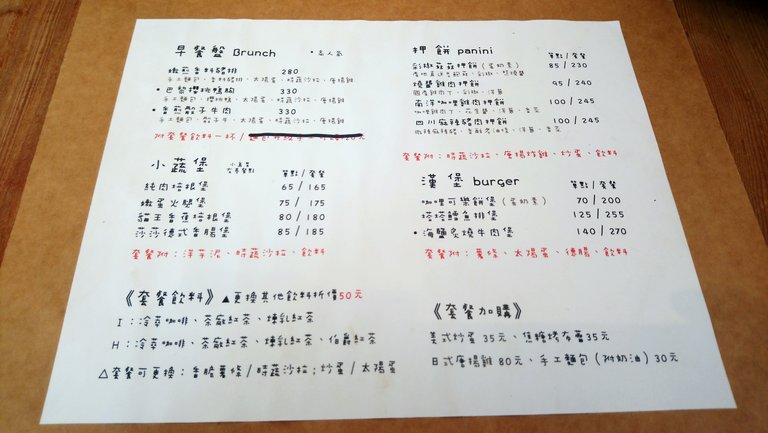 早餐盤 Brunch
•高人氣
嫩煎香料豬排 280
手工麵包、香料豬排、太陽蛋、時蔬沙拉、唐揚雞
•巴黎櫻桃鴨胸 330
手工麵包、櫻桃鴨、太陽蛋、時蔬沙拉、唐揚雞
•香煎骰子牛肉 330
手工麵包、骰子牛、太陽蛋、時蔬沙拉、唐揚雞
附套餐飲料一杯/
小蔬堡 單點/套餐
純肉培根堡 65/165
嫩蛋火腿堡 75/175
貓王香蕉培根堡 80/180
莎莎德式香腸堡 85/185
套餐附：洋芋泥、時蔬沙拉、飲料
《套餐飲料》▲更換其他飲料折價50元
I：冷萃咖啡、茶廠紅茶、煉乳紅茶
H：冷萃咖啡、茶廠紅茶、煉乳紅茶、伯爵紅茶
△套餐可更換：香脆薯條/時蔬沙拉；炒蛋/太陽蛋
押餅 panini 單點/套餐
彩椒菇菇押餅(蛋奶素) 85/230
燒蟹雞肉押餅 95/240
南洋咖哩雞肉押餅 100/245
四川麻辣豬肉押餅 100/245
套餐附：時蔬沙拉、唐揚炸雞、炒蛋、飲料
漢堡 burger 單點/套餐
咖哩可樂餅堡(蛋奶素) 70/200
塔塔鱈魚排堡 125/255
•海鹽炙燒牛肉堡 140/270
套餐附：薯條、太陽蛋、德腸、飲料
《套餐加購》
美式炒蛋 35元、焦糖烤布蕾35元
日式唐揚雞 80元、手工麵包(附奶油) 30元